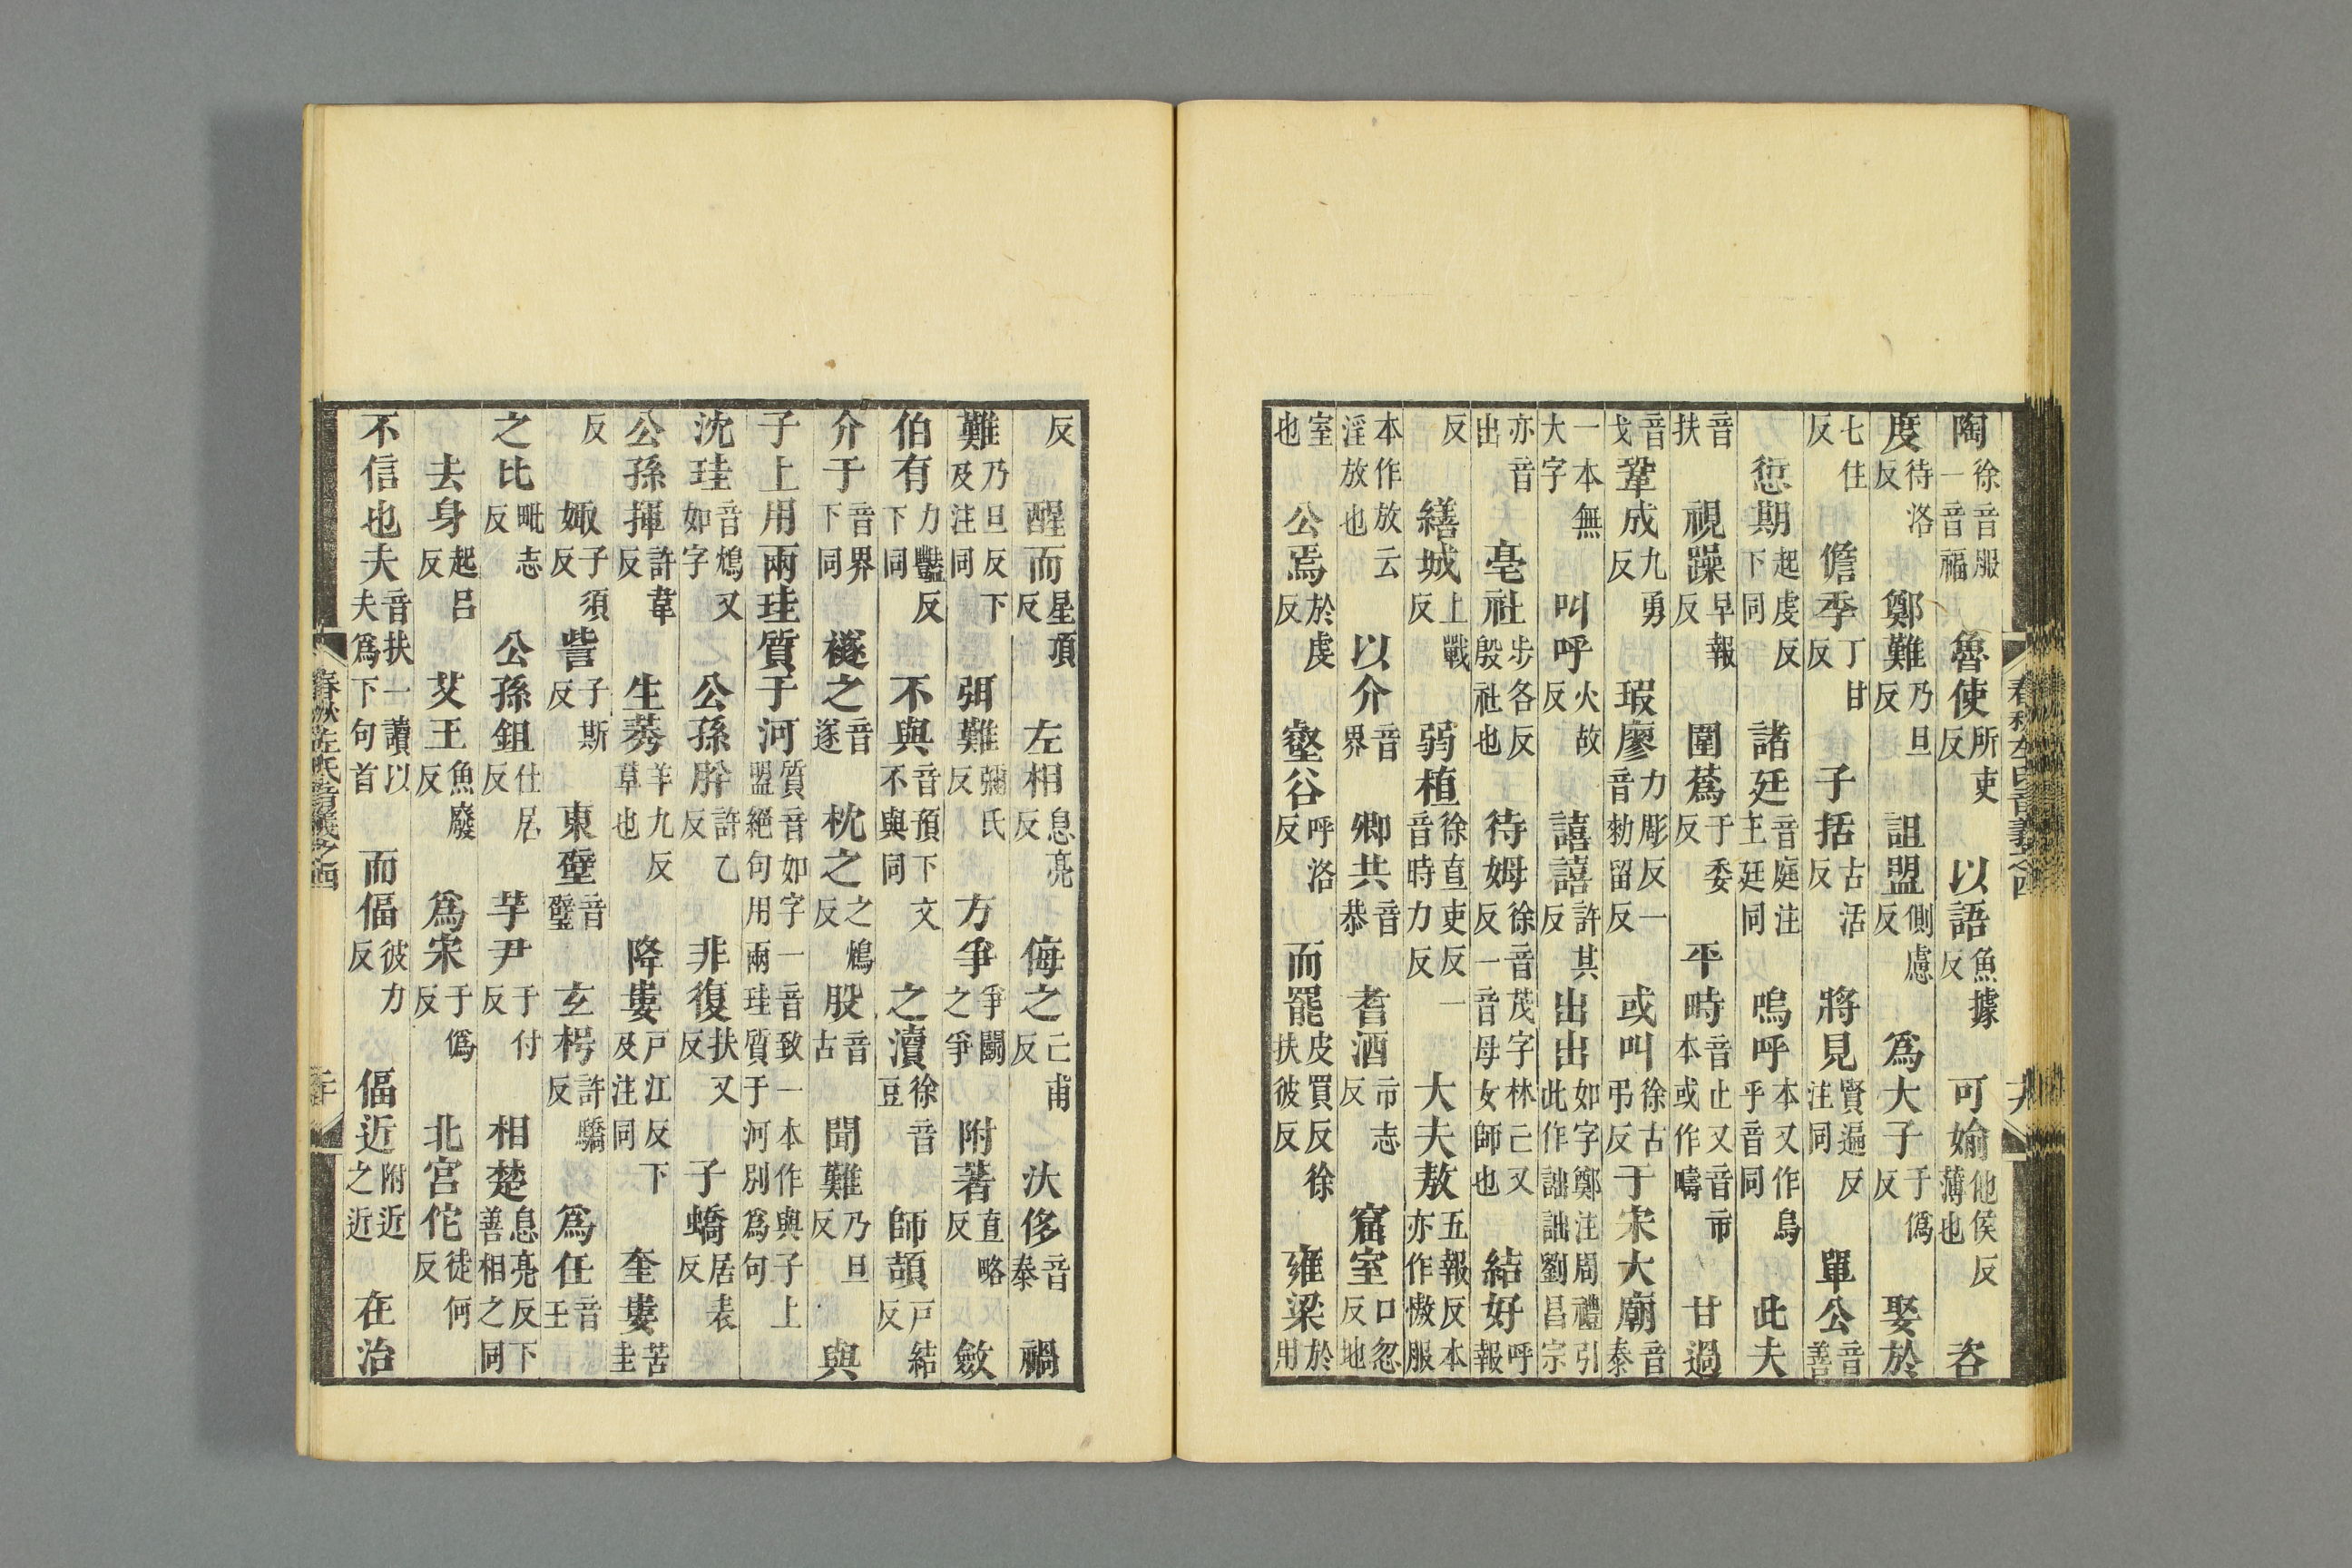 春秋左氏音義之四　十九
陶徐音服一音福　魯使所吏反　以語魚據反　可婾他侯反薄也　吝
度待洛反　鄭難乃旦反　詛盟側慮反　爲大子于僞反　娶於
七住反　儋季丁甘反　子括古活反　將見賢遍反注同　單公音善
愆期起虔反下同　諸廷音庭注王廷同　嗚呼本又作烏乎音同　此夫
音扶　視躁早報反　圍蔿于委反　平時音止又音市本或作疇　甘過
音戈　鞏成九勇反　瑕廖力彫反一音勑留反　或叫徐古弔反　于宋大廟音泰
一本無大字　叫呼火故反　譆譆許其反　出出如字鄭注周禮引此作詘詘劉昌宗
亦音出　亳社步各反殷社也　待姆徐音茂字林亡又反一音母女師也　結好呼報
反　繕城上戰反　弱植徐直吏反一音時力反　大夫敖五報反本亦作慠服
本作放云淫放也　以介音界　卿共音恭　耆酒市志反　窟室口忽反地
室也　公焉於虔反　壑谷呼洛反　而罷皮買反徐扶彼反　雍梁於用
反　醒而星頂反　左相息亮反　侮之亡甫反　汏侈音泰　禍
難乃旦反下及注同　弭難彌氏反　方爭爭鬭之爭　附著直略反　斂
伯有力豔反下同　不與音預下文不與同　之瀆徐音豆　師頡戶結反
介于音界下同　襚之音遂　枕之之鴆反　股音古　聞難乃旦反　與
子上用兩珪質于河質音如字一音致一本作與子上盟絕句用兩珪質于河別爲句
沈珪音鴆又如字　公孫肸許乙反　非復扶又反　子蟜居表反
公孫揮許韋反　生莠羊九反草也　降婁戶江反下及注同　奎婁苦圭
反　娵子須反　訾子斯反　東壁音璧　玄枵許驕反　爲任音壬
之比毗志反　公孫鉏仕居反　芋尹于付反　相楚息亮反下善相之同
去身起呂反　艾王魚廢反　爲宋于僞反　北宮佗徒何反
不信也夫音扶一讀以夫爲下句首　而偪彼力反　偪近附近之近　在治
春秋左氏音義之四　二十